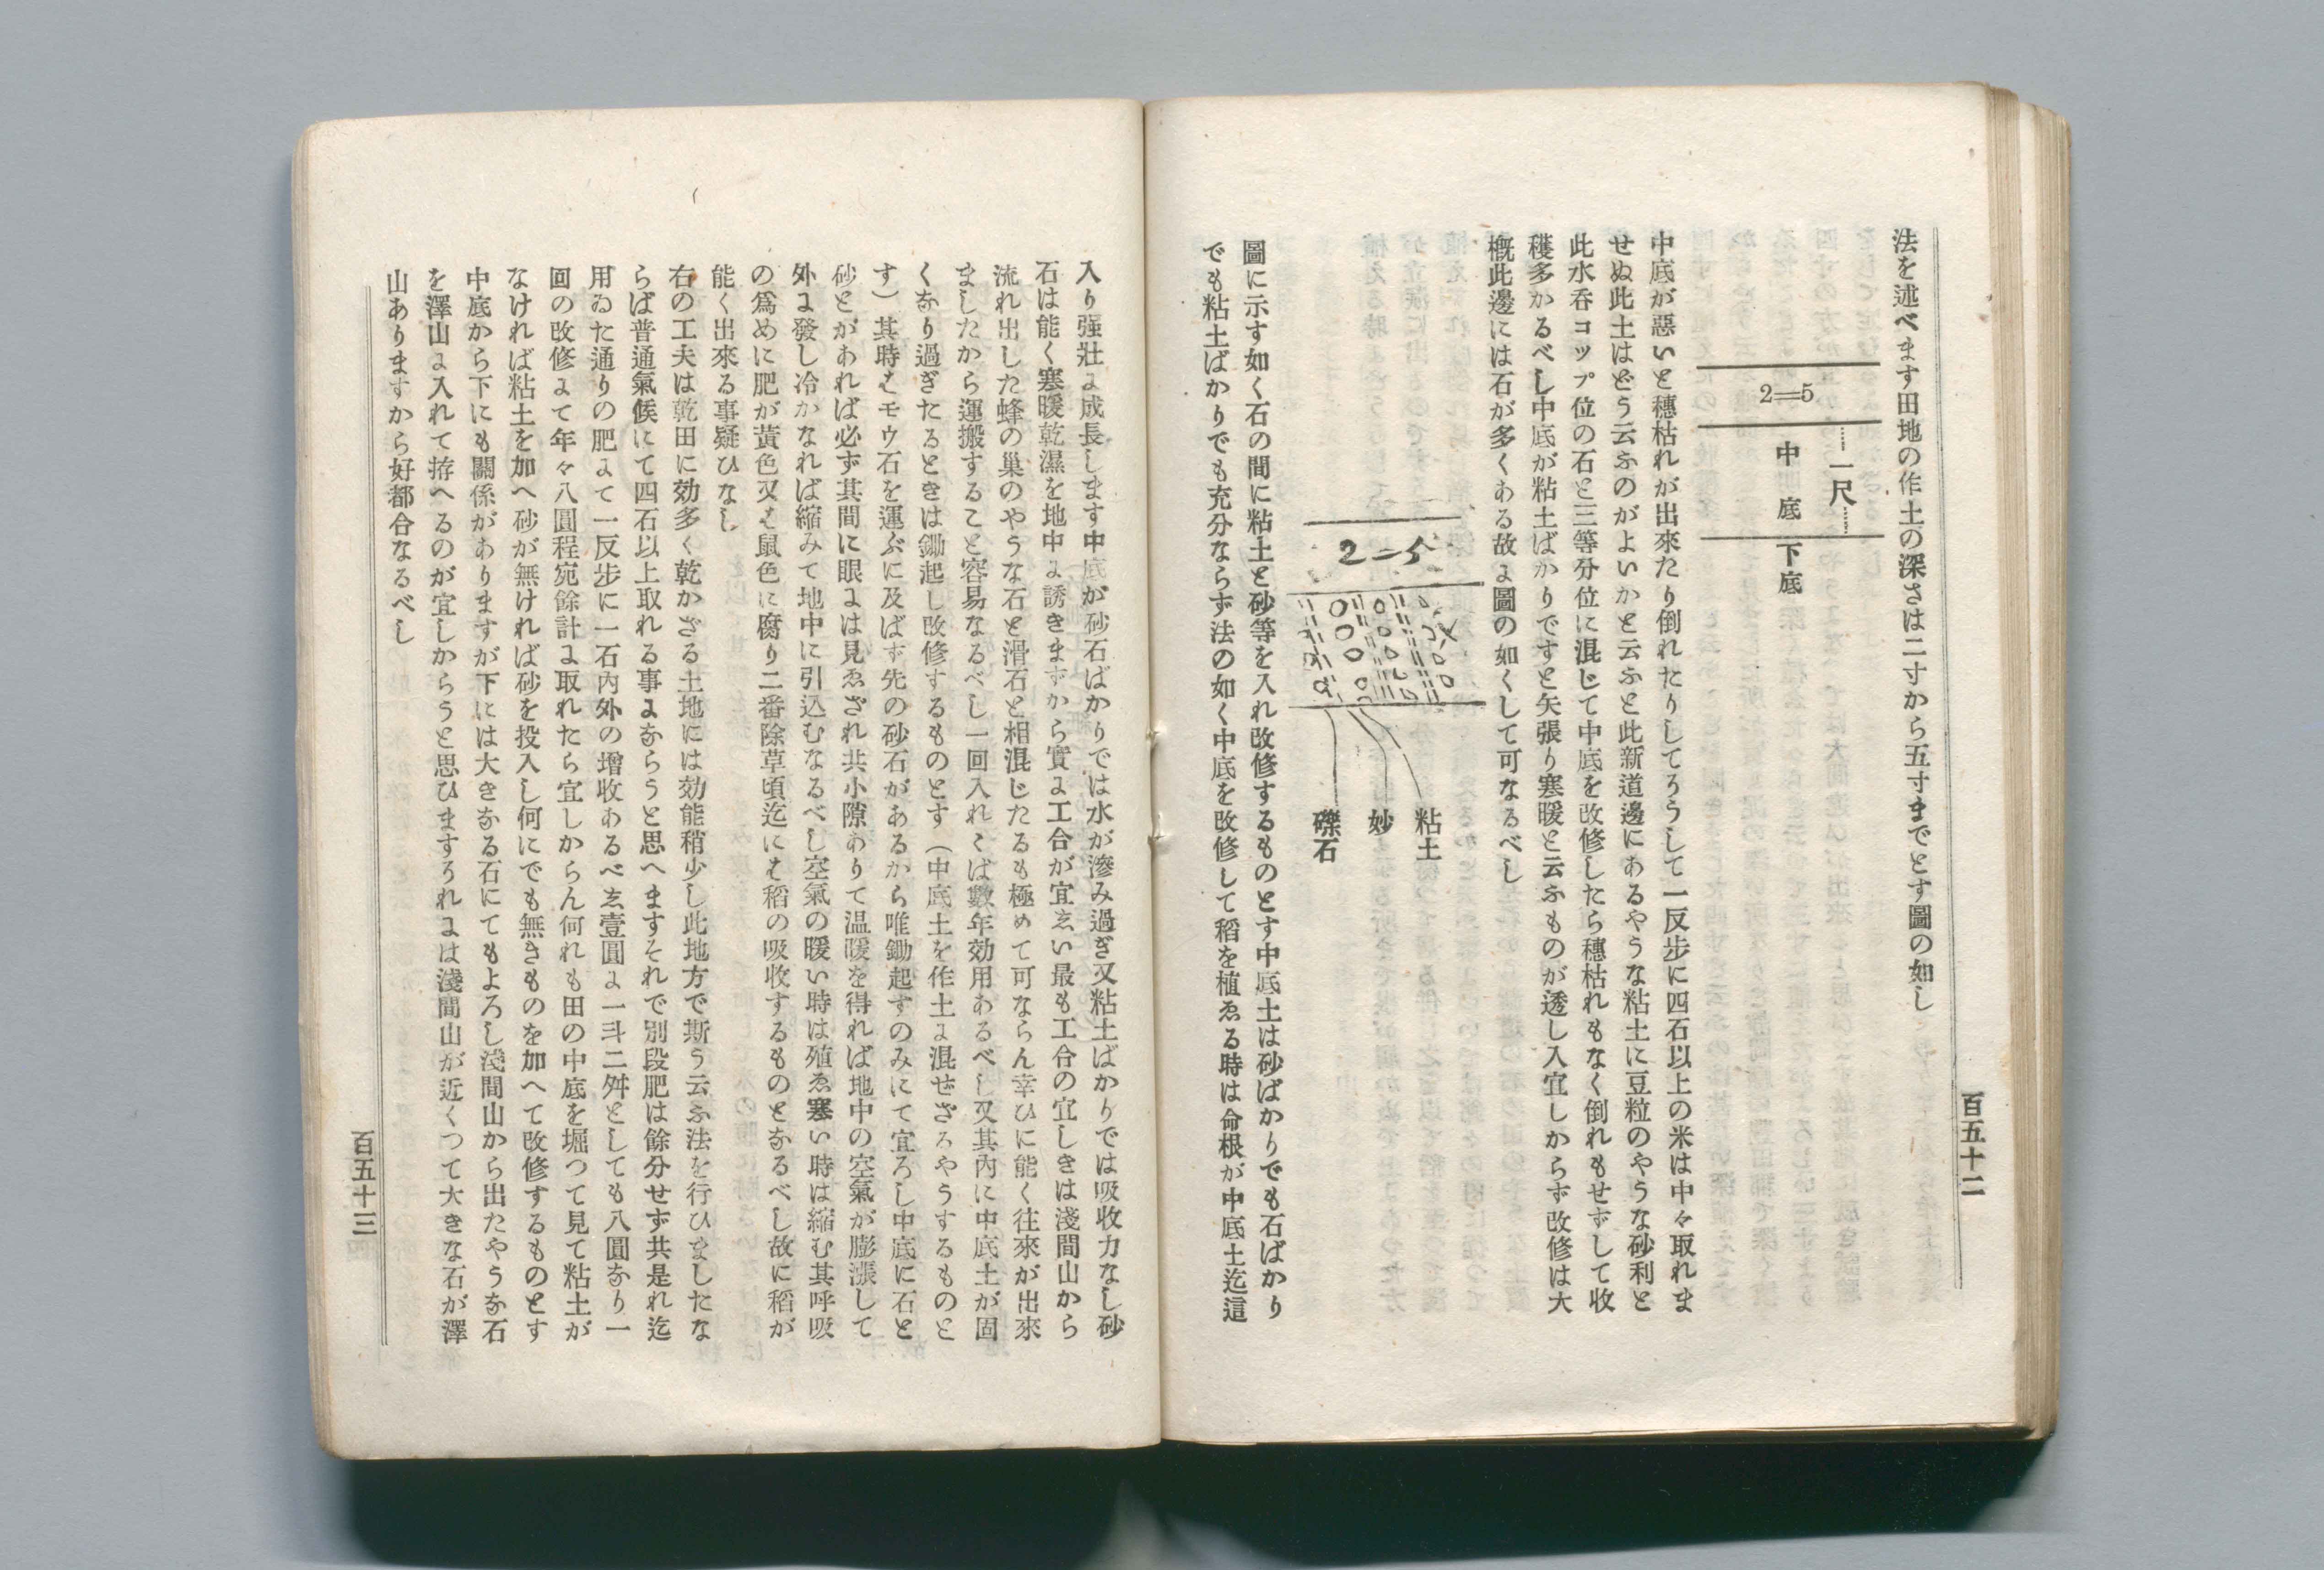 百五十二
法を述べます田地の作土の深さは二寸から五寸までとす圖の如し
2=5
一尺
中底
下底
中底が惡いと穗枯れが出來たり倒れたりしてろうして一反步に四石以上の米は中々取れま
せぬ此土はどう云ふのがよいかと云ふと此新道邊にあるやうな粘土に豆粒のやうな砂利と
此水呑コップ位の石と三等分位に混じて中底を改修したら穗枯れもなく倒れもせずして收
穫多かるべし中底が粘土ばかりですと矢張り寒暖と云ふものが透し入宜しからず改修は大
槪此邊には石が多くある故に圖の如くして可なるべし
2=5
粘土
妙
礫石
圖に示す如く石の間に粘土と砂等を入れ改修するものとす中底土は砂ばかりでも石ばかり
でも粘土ばかりでも充分ならず法の如く中底を改修して稻を植ゑる時は命根が中底土迄這
入り强壯に成長します中底が砂石ばかりでは水が滲み過ぎ又粘土ばかりでは吸收力なし砂
石は能く寒暖乾濕を地中に誘きますから實に工合が宜ゑい最も工合の宜しきは淺間山から
流れ出した蜂の巢のやうな石と滑石と相混じたるも極めて可ならん幸ひに能く往來が出來
ましたから運搬すること容易なるべし一回入れくば數年効用あるべし又其內に中底土が固
くなり過ぎたるときは鋤起し改修するものとす（中底土を作土に混せざろやうするものと
す）其時はモウ石を運ぶに及ばず先の砂石があるから唯鋤起すのみにて宜ろし中底に石と
砂とがあれば必ず其間に眼には見ゑざれ共小隙ありて温暖を得れば地中の空氣が膨漲して
外に發し冷かなれば縮みて地中に引込むなるべし空氣の暖い時は殖ゑ寒い時は縮む其呼吸
の爲めに肥が黃色又は鼠色に腐り二番除草頃迄には稻の吸收するものとなるべし故に稻が
能く出來る事疑ひなし
右の工夫は乾田に効多く乾かざる土地には効能稍少し此地方で斯う云ふ法を行ひましたな
らば普通氣候にて四石以上取れる事にならうと思へますそれで別段肥は餘分せず共是れ迄
用ゐた通りの肥にて一反步に一石內外の增收あるべゑ壹圓に一斗二舛としても八圓なり一
回の改修にて年々八圓程宛餘計に取れたら宜しからん何れも田の中底を堀つて見て粘土が
なければ粘土を加へ砂が無ければ砂を投入し何にでも無きものを加へて改修するものとす
中底から下にも關係がありますが下には大きなる石にてもよろし淺間山から出たやうな石
を澤山に入れて拵へるのが宜しからうと思ひますろれには淺間山が近くつて大きな石が澤
山ありますから好都合なるべし
百五十三